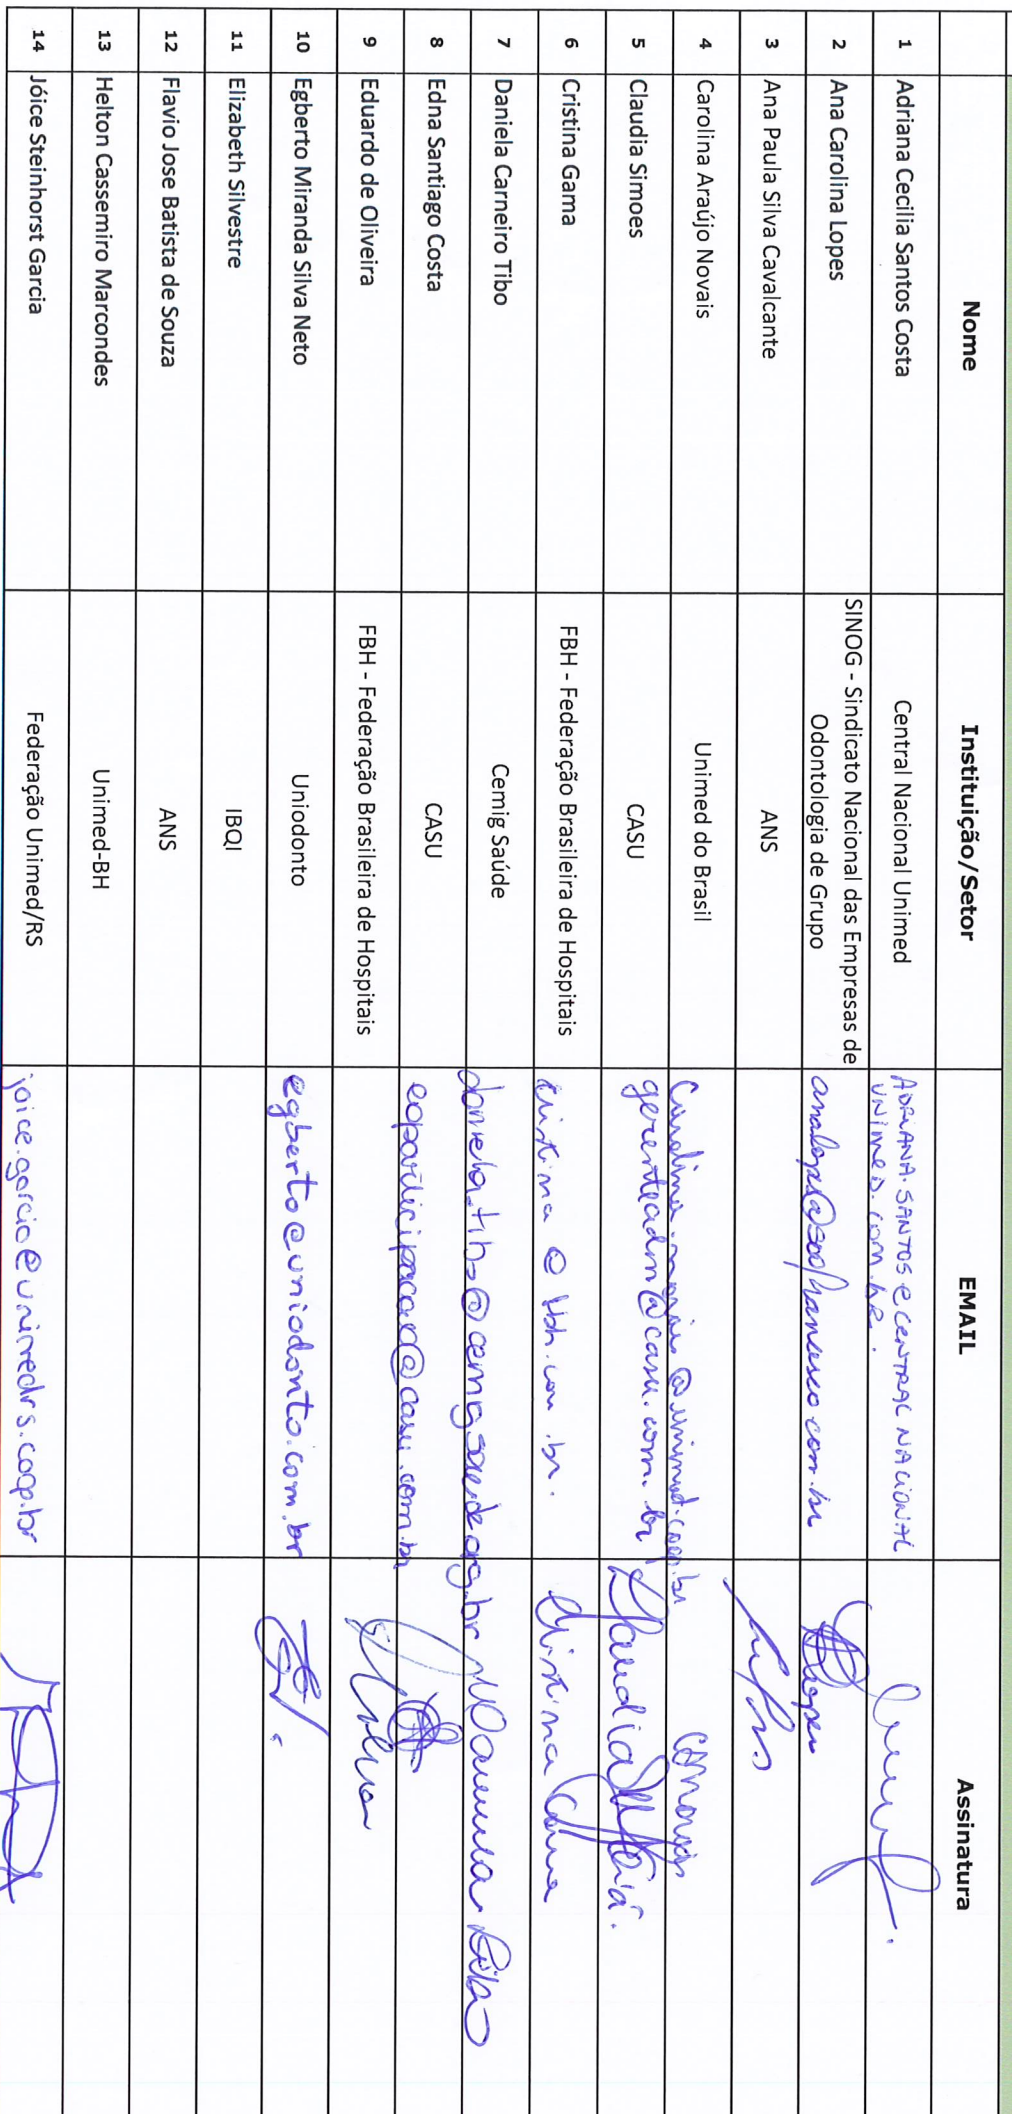 Nome Instituição/Setor EMAIL Assinatura
1 Adriana Cecilia Santos Costa Central Nacional Unimed ADRIANA.SANTOS@CENTRAL NACIONAL
UNIMED.COM.BR.
2 Ana Carolina Lopes SINOG - Sindicato Nacional das Empresas de
Odontologia de Grupo analopes@saofrancisco.com.br
3 Ana Paula Silva Cavalcante ANS
4 Carolina Araújo Novais Unimed do Brasil carolina.novais@unimed.coop.br CANovais
5 Claudia Simoes CASU gerenteadm@casu.com.br
6 Cristina Gama FBH - Federação Brasileira de Hospitais cristina@fbh.com.br. Cristina Gama
7 Daniela Carneiro Tibo Cemig Saúde daniela.tibo@cemigsaude.org.br
8 Edna Santiago Costa CASU
9 Eduardo de Oliveira FBH - Federação Brasileira de Hospitais
10 Egberto Miranda Silva Neto Uniodonto egberto@uniodonto.com.br
11 Elizabeth Silvestre IBQI
12 Flavio Jose Batista de Souza ANS
13 Helton Cassemiro Marcondes Unimed-BH
14 Jóice Steinhorst Garcia Federação Unimed/RS joice.garcia@unimedrs.coop.br